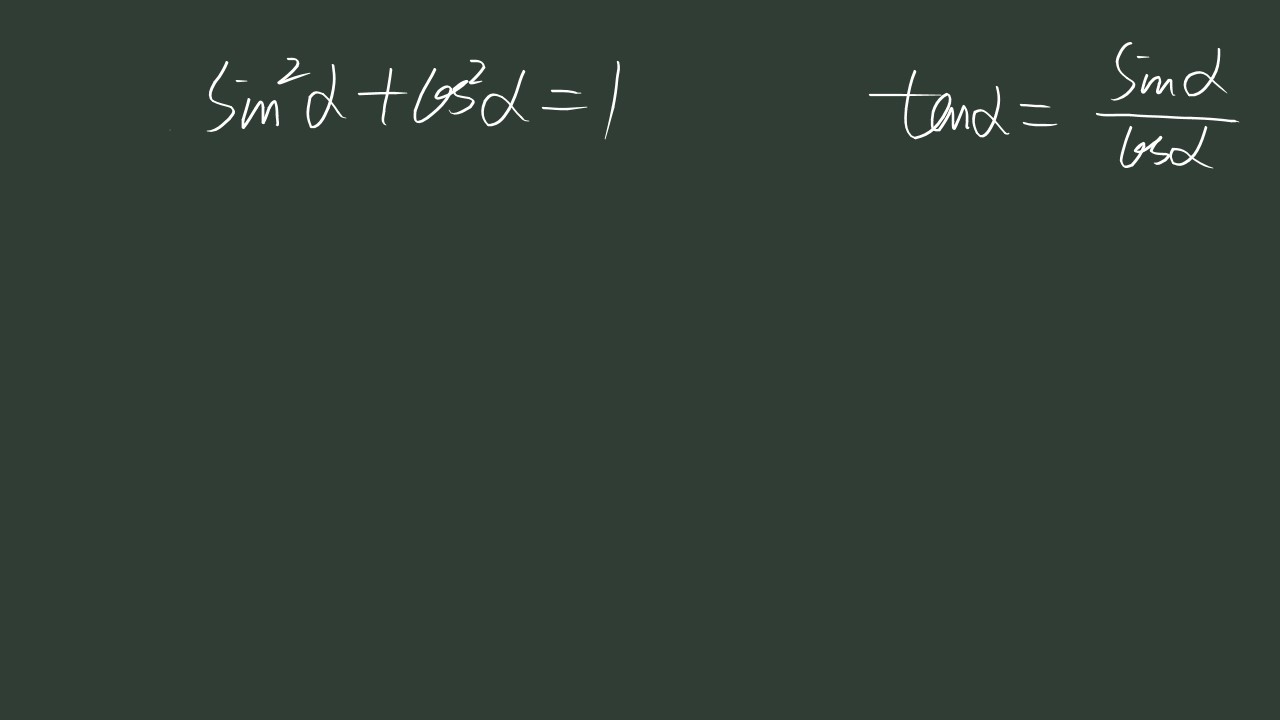 sin²α+cos²α=1
tanα= sinα/cosα